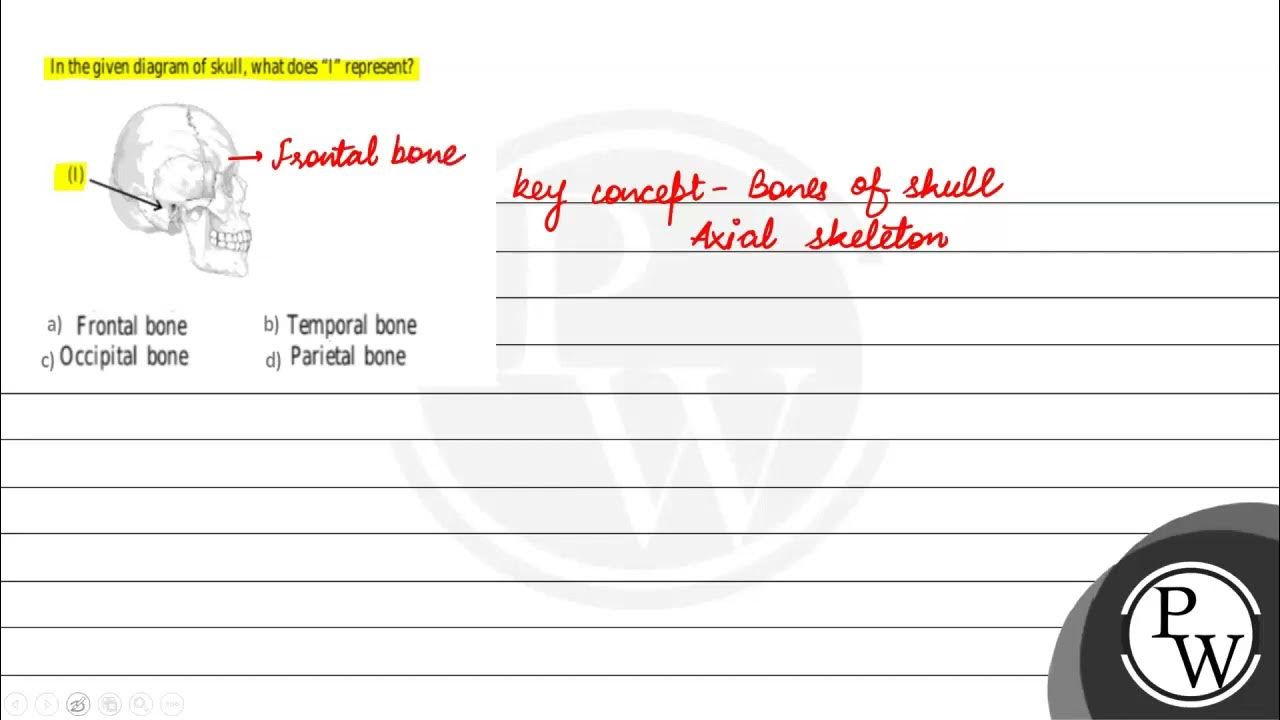 In the given diagram of skull, what does "I" represent?
(I)
→ Frontal bone
key concept - Bones of skull
Axial skeleton
a) Frontal bone
b) Temporal bone
c) Occipital bone
d) Parietal bone
PW
PW